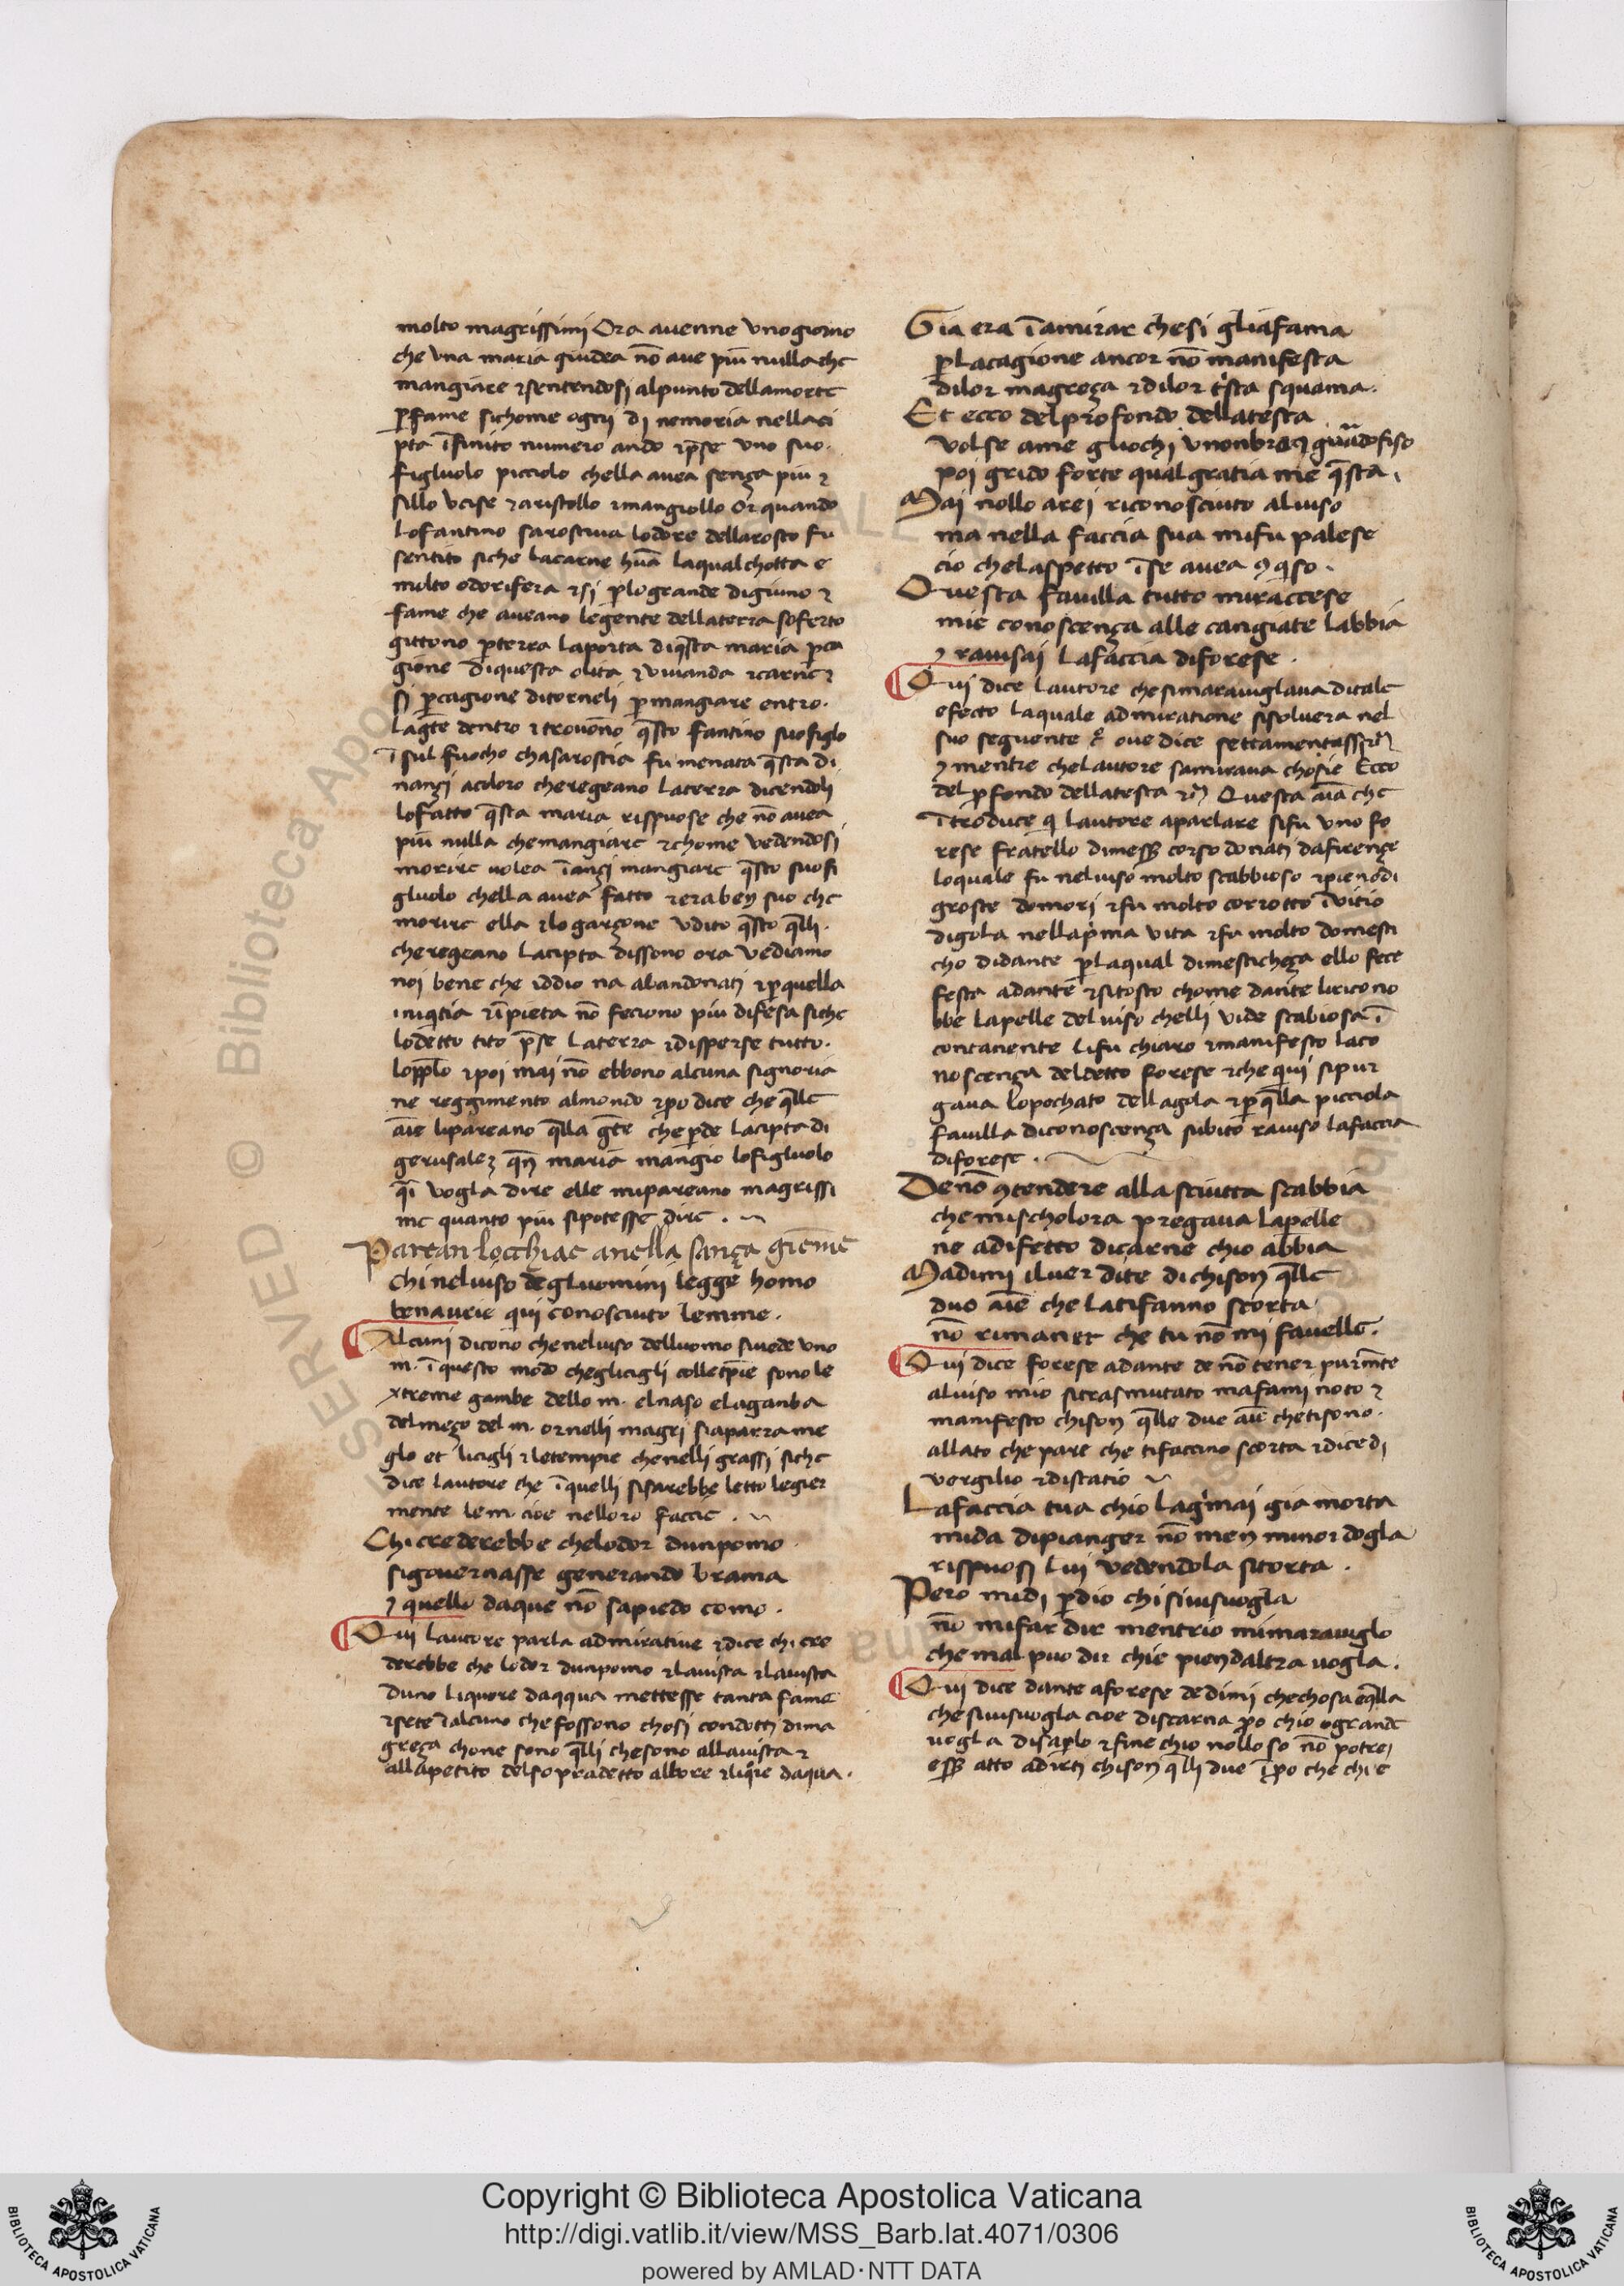 molto magrissimi Ora auenne vnogiorno
che vna maria giudea nō aue piū nulla che
mangiare ⁊sentendosi alpunto dellamorte
ꝑfame sichome ogni di nemoria nellaci
pta īfinito numero ando ⁊p̄se vno suo·
figluolo picciolo chella auea sença piu ⁊
sillo vcise ⁊aristollo ⁊mangiollo Or quando
Lofantino sarostiua lodore dellarosto fu
sentito siche lacarne hūa laqualchotta e
molto odorifera ⁊si ꝑlogrande digiuno ⁊
fame che aueano legente dellaterra soferto
gittono ꝑterra laporta diq̄sta maria ꝑca
gione diquesta olita ⁊viuanda ⁊carne⁊
si ꝑcagione ditorneli ꝑmangiare entro·
lagēte dentro ⁊trouōno q̄sto fantino suofiglo
ī sul fuocho chasarostia fu menata q̄sta di
nançi acoloro cheregeano laterra dicendoli
lofatto q̄sta maria rispuose che nō auea
piū nulla chemangiare ⁊chome vedendosi
morire volea īançi mangiare q̄sto suofi
gluolo chella auea fatto ⁊eraben suo che
morire ella ⁊logarçone vdito q̄sto q̄lli·
cheregeano lacipta dissono ora vediamo
noi bene che iddio na abandonati ⁊ꝑquella
iniq̇tia ⁊īpieta nō feciono piu difesa siche
lodetto tito p̄se laterra ⁊disperse tutto·
lopp̄lo ⁊poi mai nō ebbono alcuna signoria
ne reggimento almondo ⁊ꝑo dice che q̄lle
āie lipareano q̄lla gēte che ꝑde lacipta di
gerusaleȝ qn̄ maria mangio lofigluolo
q̄i vogla dire elle mipareano magrissi
me quanto piu sipotesse dire ·
Parean locchiae anella sança giemme
chi neluiso degluomini legge homo
benaurie qui conosciuto lemme·
Alcuni dicono cheneluiso delluomo siuede vno
m· ī questo modo cheglicigli colletp̄ie sono le
xtreme gambe dello m· elnaso elaganba
delmeço del m· ornelli magri siaparra me
glo et licigli ⁊letempie chenelli grassi siche
dice lautore che ī quelli sisarebbe letto legier
mente lem· cioe nelloro faccie ·
Chi crederebbe chelodor dunpomo·
sigouernasse generando brama
⁊ quello daque nō sapiedo como·
Qui lautore parla admiratiue ⁊dice chi cre
derebbe che lodor dunpomo ⁊lauista ⁊lauista
duno liquore daqqua mettesse tanta fame
⁊sete īalcuno che fossono chosi condotti dima
greça chone sono q̄lli chesono allauista ⁊
allapetito delsopradetto albore ⁊liq̇re daqua·
Gia era īamirar chesi gliafama
ꝑlacagione ancor nō manifesta
dilor magreça ⁊dilor tista squama·
Et ecco delprofondo dellatesta
volse ame gliochi vnonbra ⁊ guādofiso
poi grido forte qual gratia mie q̄sta·
Mai nollo arei riconosciuto aluiso
ma nella faccia sua mifu palese
cio chelaspetto īse auea ꝯq̇so·
Questa fauilla tutto miraccese
mie conoscença alle cangiate labbia
⁊ rauisai lafaccia diforese·
Qui dice lautore chesimarauiglaua ditale
efecto laquale admiratione sisoluera nel
suo seguente ove dice settamentassr
⁊ mentre chelautore samiraua chosie Ecco
del ꝓfondo dellatesta ⁊c Questa aīa che
ītroduce q̇ lautore aparlare sifu vno fo
rese fratello dimess̄ corso donati dafirençe
loquale fu neluiso molto scabbioso ⁊pienodi
groste domori ⁊fu molto corrotto īvitio
digola nellap̄ma vita ⁊fu molto domesti
cho didante ꝑlaqual dimesticheça ello fece
festa adante ⁊sitosto chome dante liricono
bbe lapelle deluiso chelli vide scabiosa ī
contanente lifu chiaro ⁊manifesto laco
noscença deldetto forese ⁊che quiui sipur
gaua lopechato dellagola ⁊ꝑq̄lla picciola
fauilla diconoscença subito rauiso lafaccia
diforese ·
Denō ꝯtendere alla sciutta scabbia
chemischolora pregaua lapelle
ne adifetto dicarne chio abbia
Madimi iluer dite dichison q̄lle
duo āie che latifanno scorta
nō rimaner che tu nō mi fauelle·
Qui dice forese adante de nō tener purm̄te
aluiso mio sitrasmutato mafami noto ⁊
manifesto chison q̄lle due āie chetisono·
allato che pare che tifaccino scorta ⁊dicedi
vergilio ⁊distatio
Lafaccia tua chio lagrimai gia morta
mida dipianger nō men minor dogla
rispuosi lui vedendola sitorta ·
Pero midi ꝑdio chi siuisuogla
nō mifar dir mentrio mimarauiglo
chemal puo dir chie piendaltra uogla·
Qui dice dante aforese dedimi chechosa eq̄lla
chesiuisuogla cioe discarna ꝑo chio ogrande
uogla disaꝑlo ⁊fine chio nollo so nō potrei
ess̄ atto adirti chison q̄lli due īꝑo che chie
Copyright © Biblioteca Apostolica Vaticana
http://digi.vatlib.it/view/MSS_Barb.lat.4071/0306
powered by AMLAD·NTT DATA
BIBLIOTECA APOSTOLICA VATICANA
BIBLIOTECA APOSTOLICA VATICANA